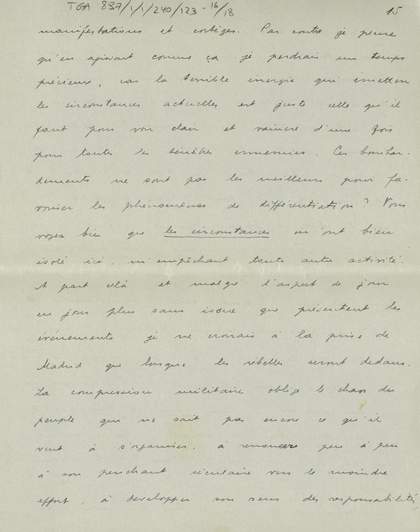 TGA 897/1/1/240/123-16/18
15
manifestations et cortèges. Par contre je pense
qu'en agissant comme ça je perdrais un temps
précieux, car la terrible énergie qui émettent
les circonstances actuelles est juste celle qu'il
faut pour voir clair et vaincre d'une fois
pour toutes les ténèbres ennemies. Ces bombar-
dements ne sont pas les meilleurs pour fa-
voriser les phénomènes de différentiation? Vous
voyez bien que les circonstances m'ont bien
isolé ici, m'empêchant toute autre activité.
A part cela et malgré l'aspect de jour
en jour plus sans issue que présentent les
événements je ne croirais à la prise de
Madrid que lorsque les rebelles seront dedans.
La compression militaire oblige le chaos du
peuple qui ne sait pas encore ce qu'il
veut à s'organiser, à renoncer peu à peu
à son penchant séculaire vers le moindre
effort, à développer son sens des responsabilités